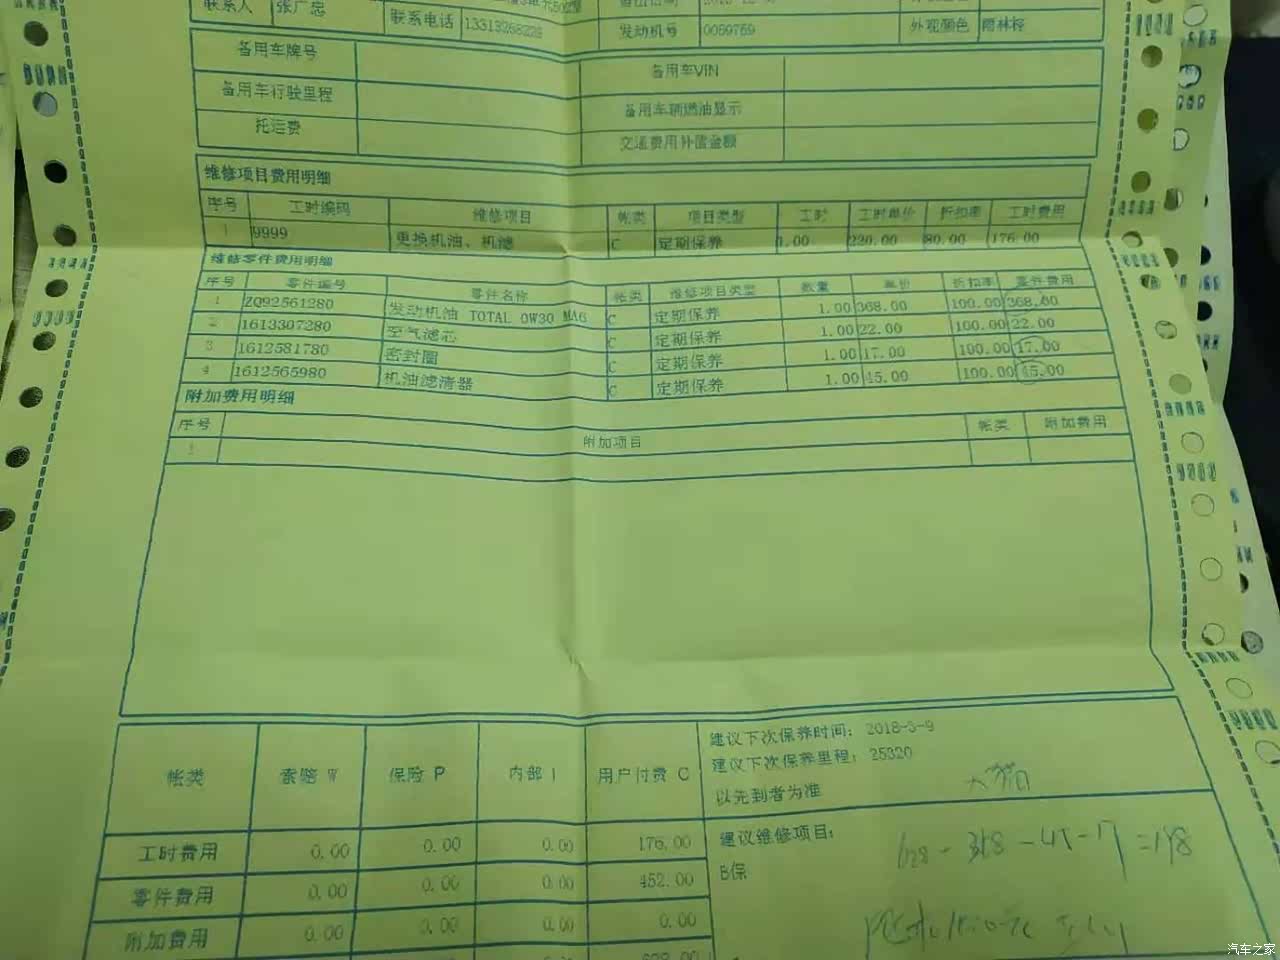 联系人 张广忠 联系电话 13313268229
发动机号 0059759 外观颜色 雨林棕
备用车牌号 备用车VIN
备用车行驶里程 备用车辆燃油显示
托运费 交通费用补偿金额
维修项目费用明细
序号 工时编码 维修项目 帐类 项目类型 工时 工时单价 折扣率 工时费用
1 9999 更换机油、机滤 C 定期保养 1.00 220.00 80.00 176.00
维修零件费用明细
序号 零件编号 零件名称 帐类 维修项目类型 数量 单价 折扣率 零件费用
1 ZQ92561280 发动机油 TOTAL 0W30 MA6 C 定期保养 1.00 368.00 100.00 368.00
2 1613307280 空气滤芯 C 定期保养 1.00 22.00 100.00 22.00
3 1612581780 密封圈 C 定期保养 1.00 17.00 100.00 17.00
4 1612565980 机油滤清器 C 定期保养 1.00 45.00 100.00 45.00
附加费用明细
序号 附加项目 帐类 附加费用
1
帐类 索赔 W 保险 P 内部 I 用户付费 C
工时费用 0.00 0.00 0.00 176.00
零件费用 0.00 0.00 0.00 452.00
附加费用 0.00 0.00 0.00 0.00
628.00
建议下次保养时间: 2018-3-9
建议下次保养里程: 25320
以先到者为准
建议维修项目:
B保
628-368-45-17=198
汽车之家